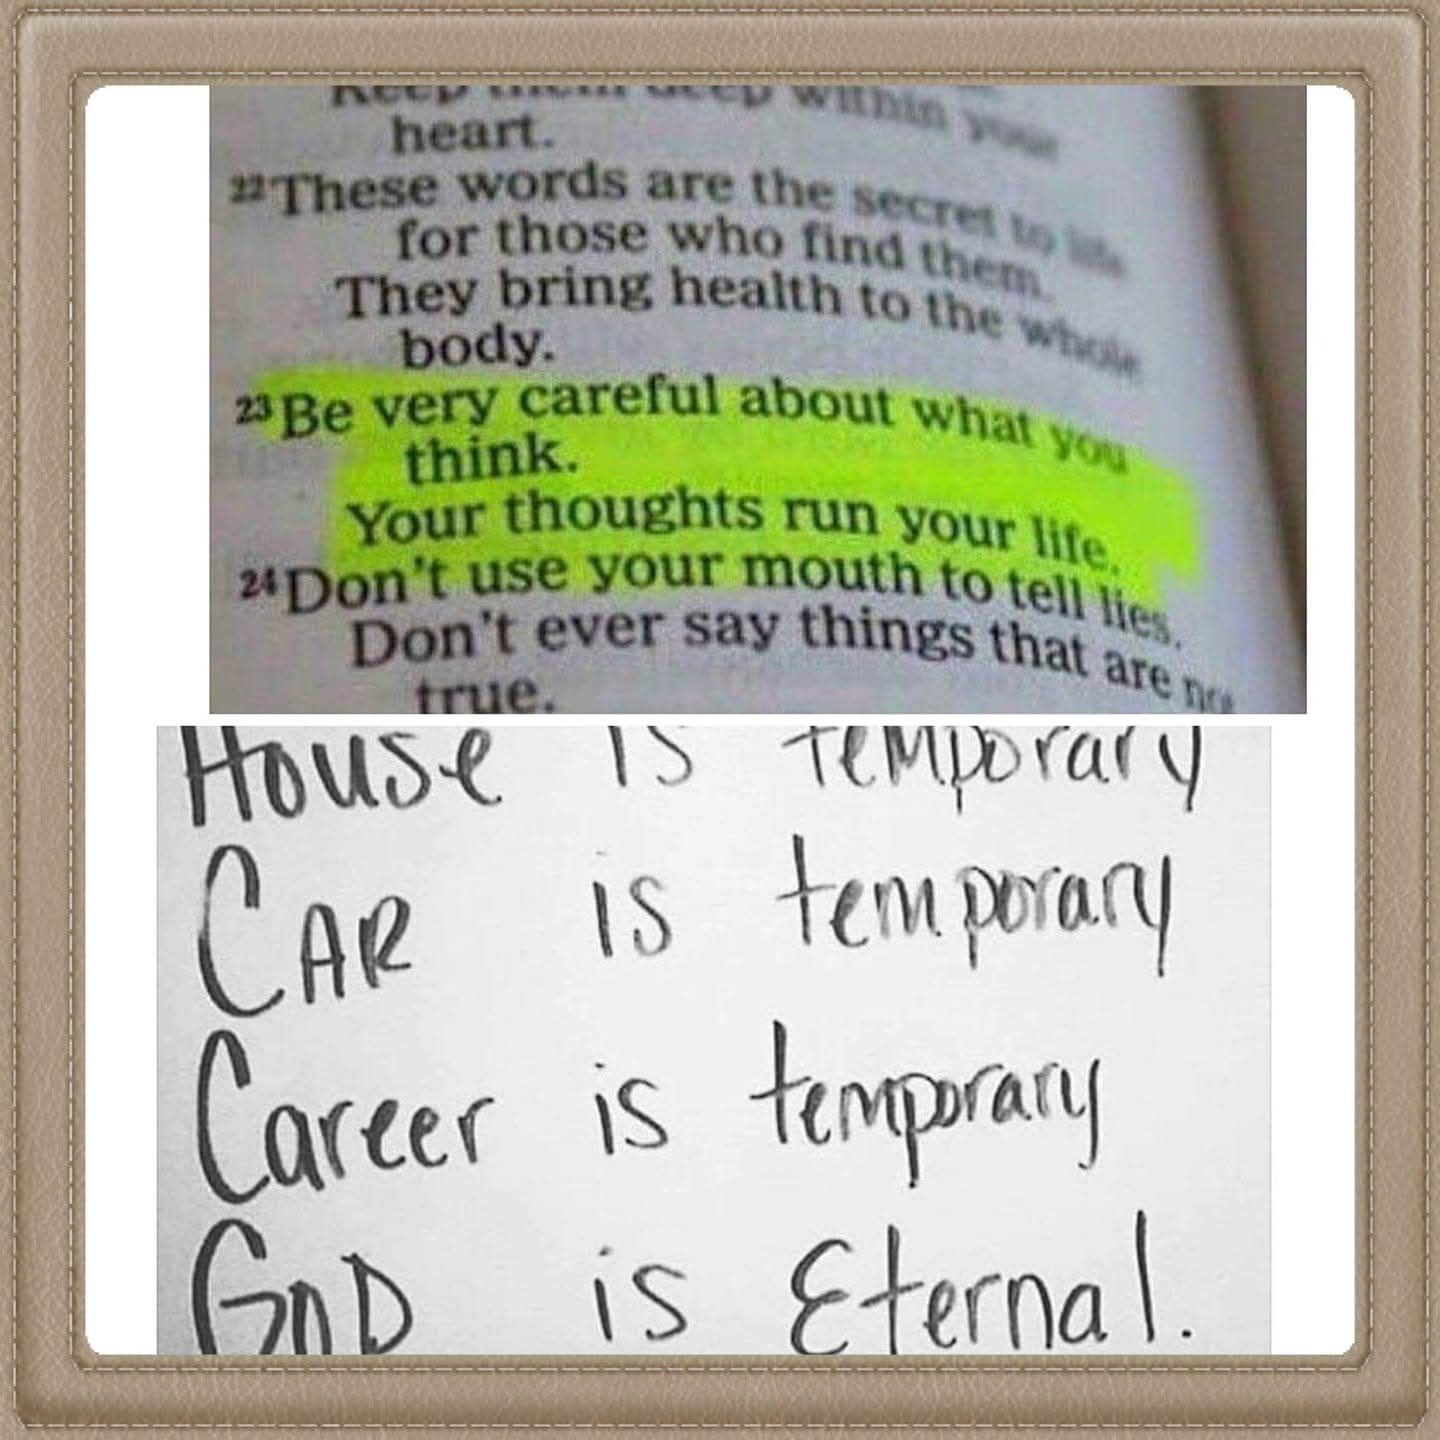 Keep them deep within your
heart.
22 These words are the secret to life
for those who find them.
They bring health to the whole
body.
23 Be very careful about what you
think.
Your thoughts run your life.
24 Don't use your mouth to tell lies.
Don't ever say things that are not
true.
House is temporary
CAR is temporary
Career is temporary
GOD is Eternal.